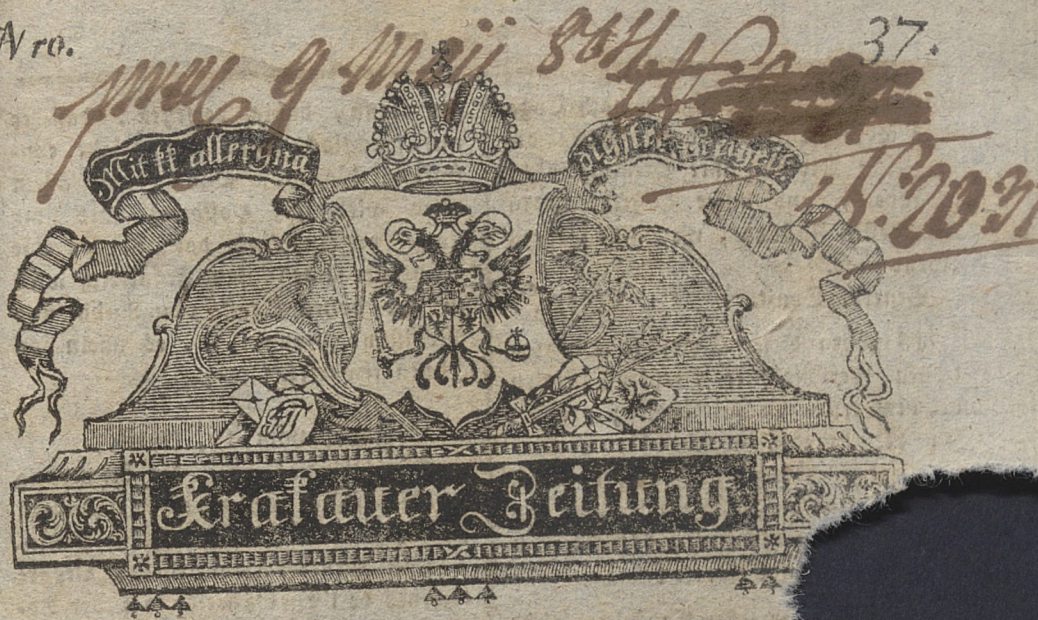 Nro. 37.
praes 9 Maji 804
N. 203
Mit kk allergnä
digster Freyheit
Krakauer Zeitung.